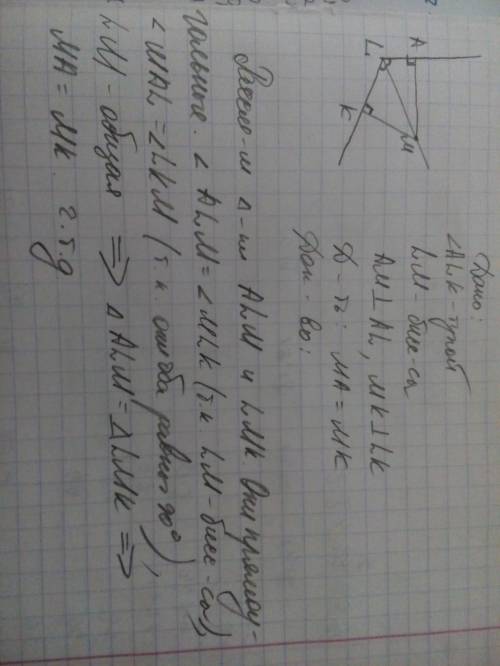 A
L
M
K
Дано:
<ALK - тупой
LM - бисс-са
AM⊥AL, MK⊥LK
Д-ть: MA = MK
Док-во:
Рассм-м Δ-ки ALM и LMK. Они прямоу-
гольные. <ALM = <MLK (т.к LM - бисс-са),
<MAL = <LKM (т.к. они оба равны 90°),
LM - общая => ΔALM = ΔLMK =>
MA = MK ч.т.д